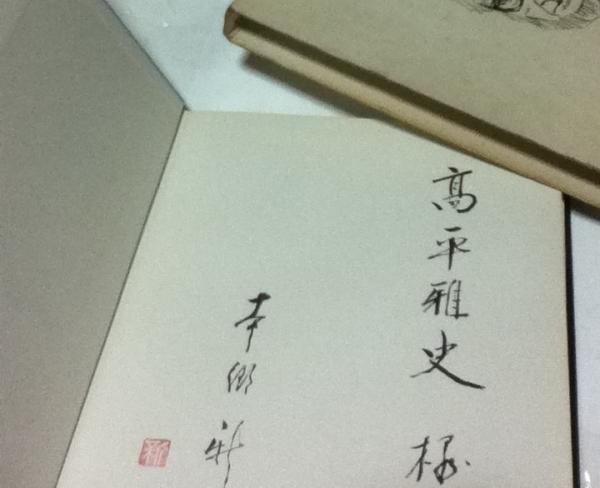 高平雅史 様
本郷 新
新